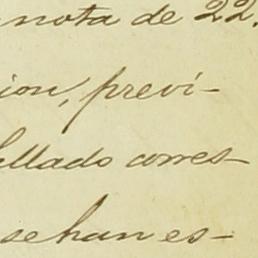 nota de 22.
ion, previ-
llado corres-
se han es-